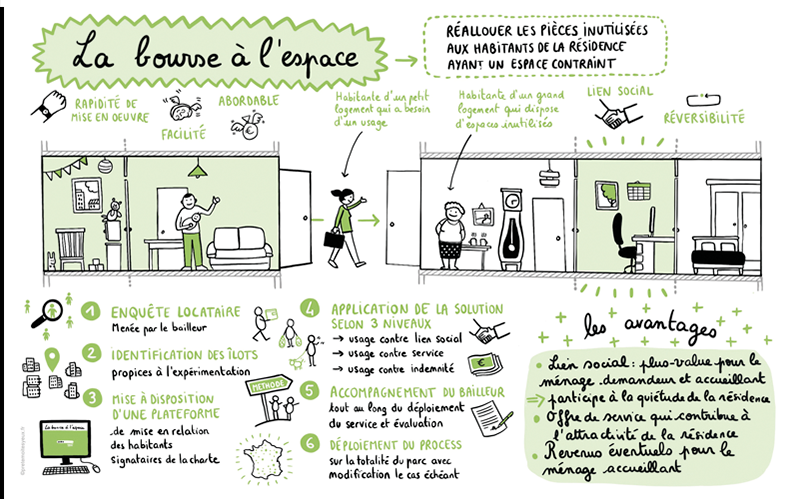 La bourse à l'espace
RÉALLOUER LES PIÈCES INUTILISÉES
AUX HABITANTS DE LA RÉSIDENCE
AYANT UN ESPACE CONTRAINT
RAPIDITÉ DE
MISE EN OEUVRE
FACILITÉ
ABORDABLE
Habitante d'un petit
logement qui a besoin
d'un usage
Habitante d'un grand
logement qui dispose
d'espaces inutilisés
LIEN SOCIAL
RÉVERSIBILITÉ
1 ENQUÊTE LOCATAIRE
Menée par le bailleur
2 IDENTIFICATION DES ÎLOTS
propices à l'expérimentation
3 MISE À DISPOSITION
D'UNE PLATEFORME
de mise en relation
des habitants
Signataires de la charte
La bourse à l'espace
4 APPLICATION DE LA SOLUTION
SELON 3 NIVEAUX
→ usage contre lien social
→ usage contre service
→ usage contre indemnité
MÉTHODE
5 ACCOMPAGNEMENT DU BAILLEUR
tout au long du déploiement
du service et évaluation
6 DÉPLOIEMENT DU PROCESS
sur la totalité du parc avec
modification le cas échéant
les avantages
• Lien social : plus-value pour le
ménage demandeur et accueillant
⇒ participe à la quiétude de la résidence
• Offre de service qui contribue à
l'attractivité de la résidence
• Revenus éventuels pour le
ménage accueillant